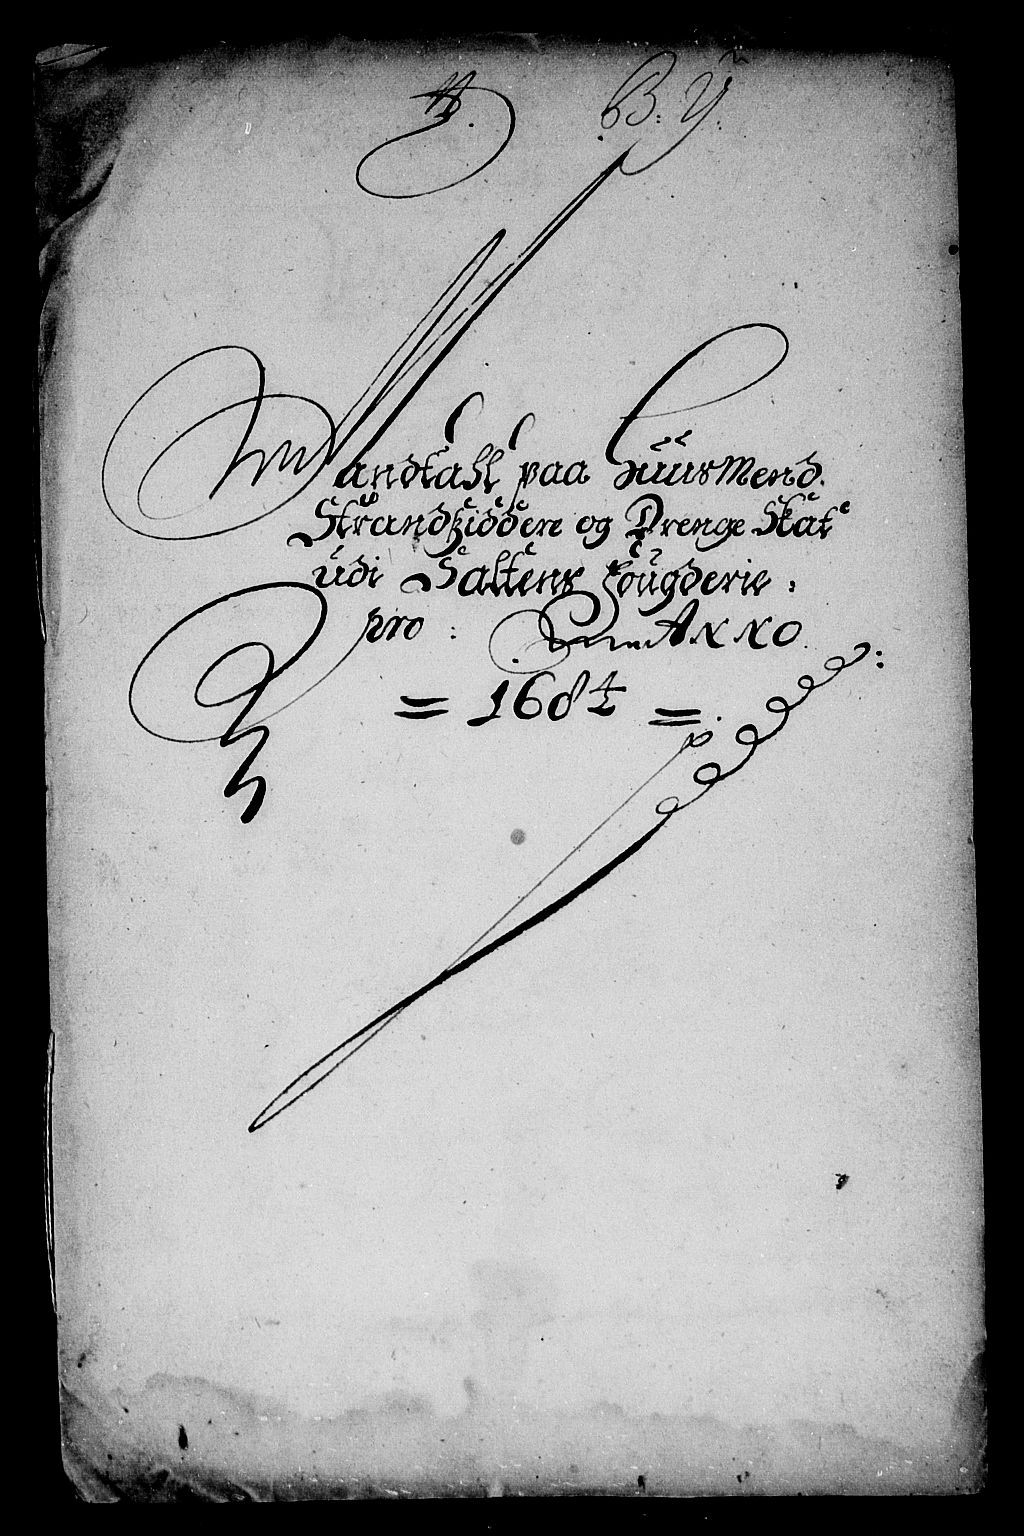 B: ÿ:
Mandtall paa Huus Mend.
Strandsiddere og Drenge Skat
udi Saltens fougderie :
pro : Anno.
= 1684 = .